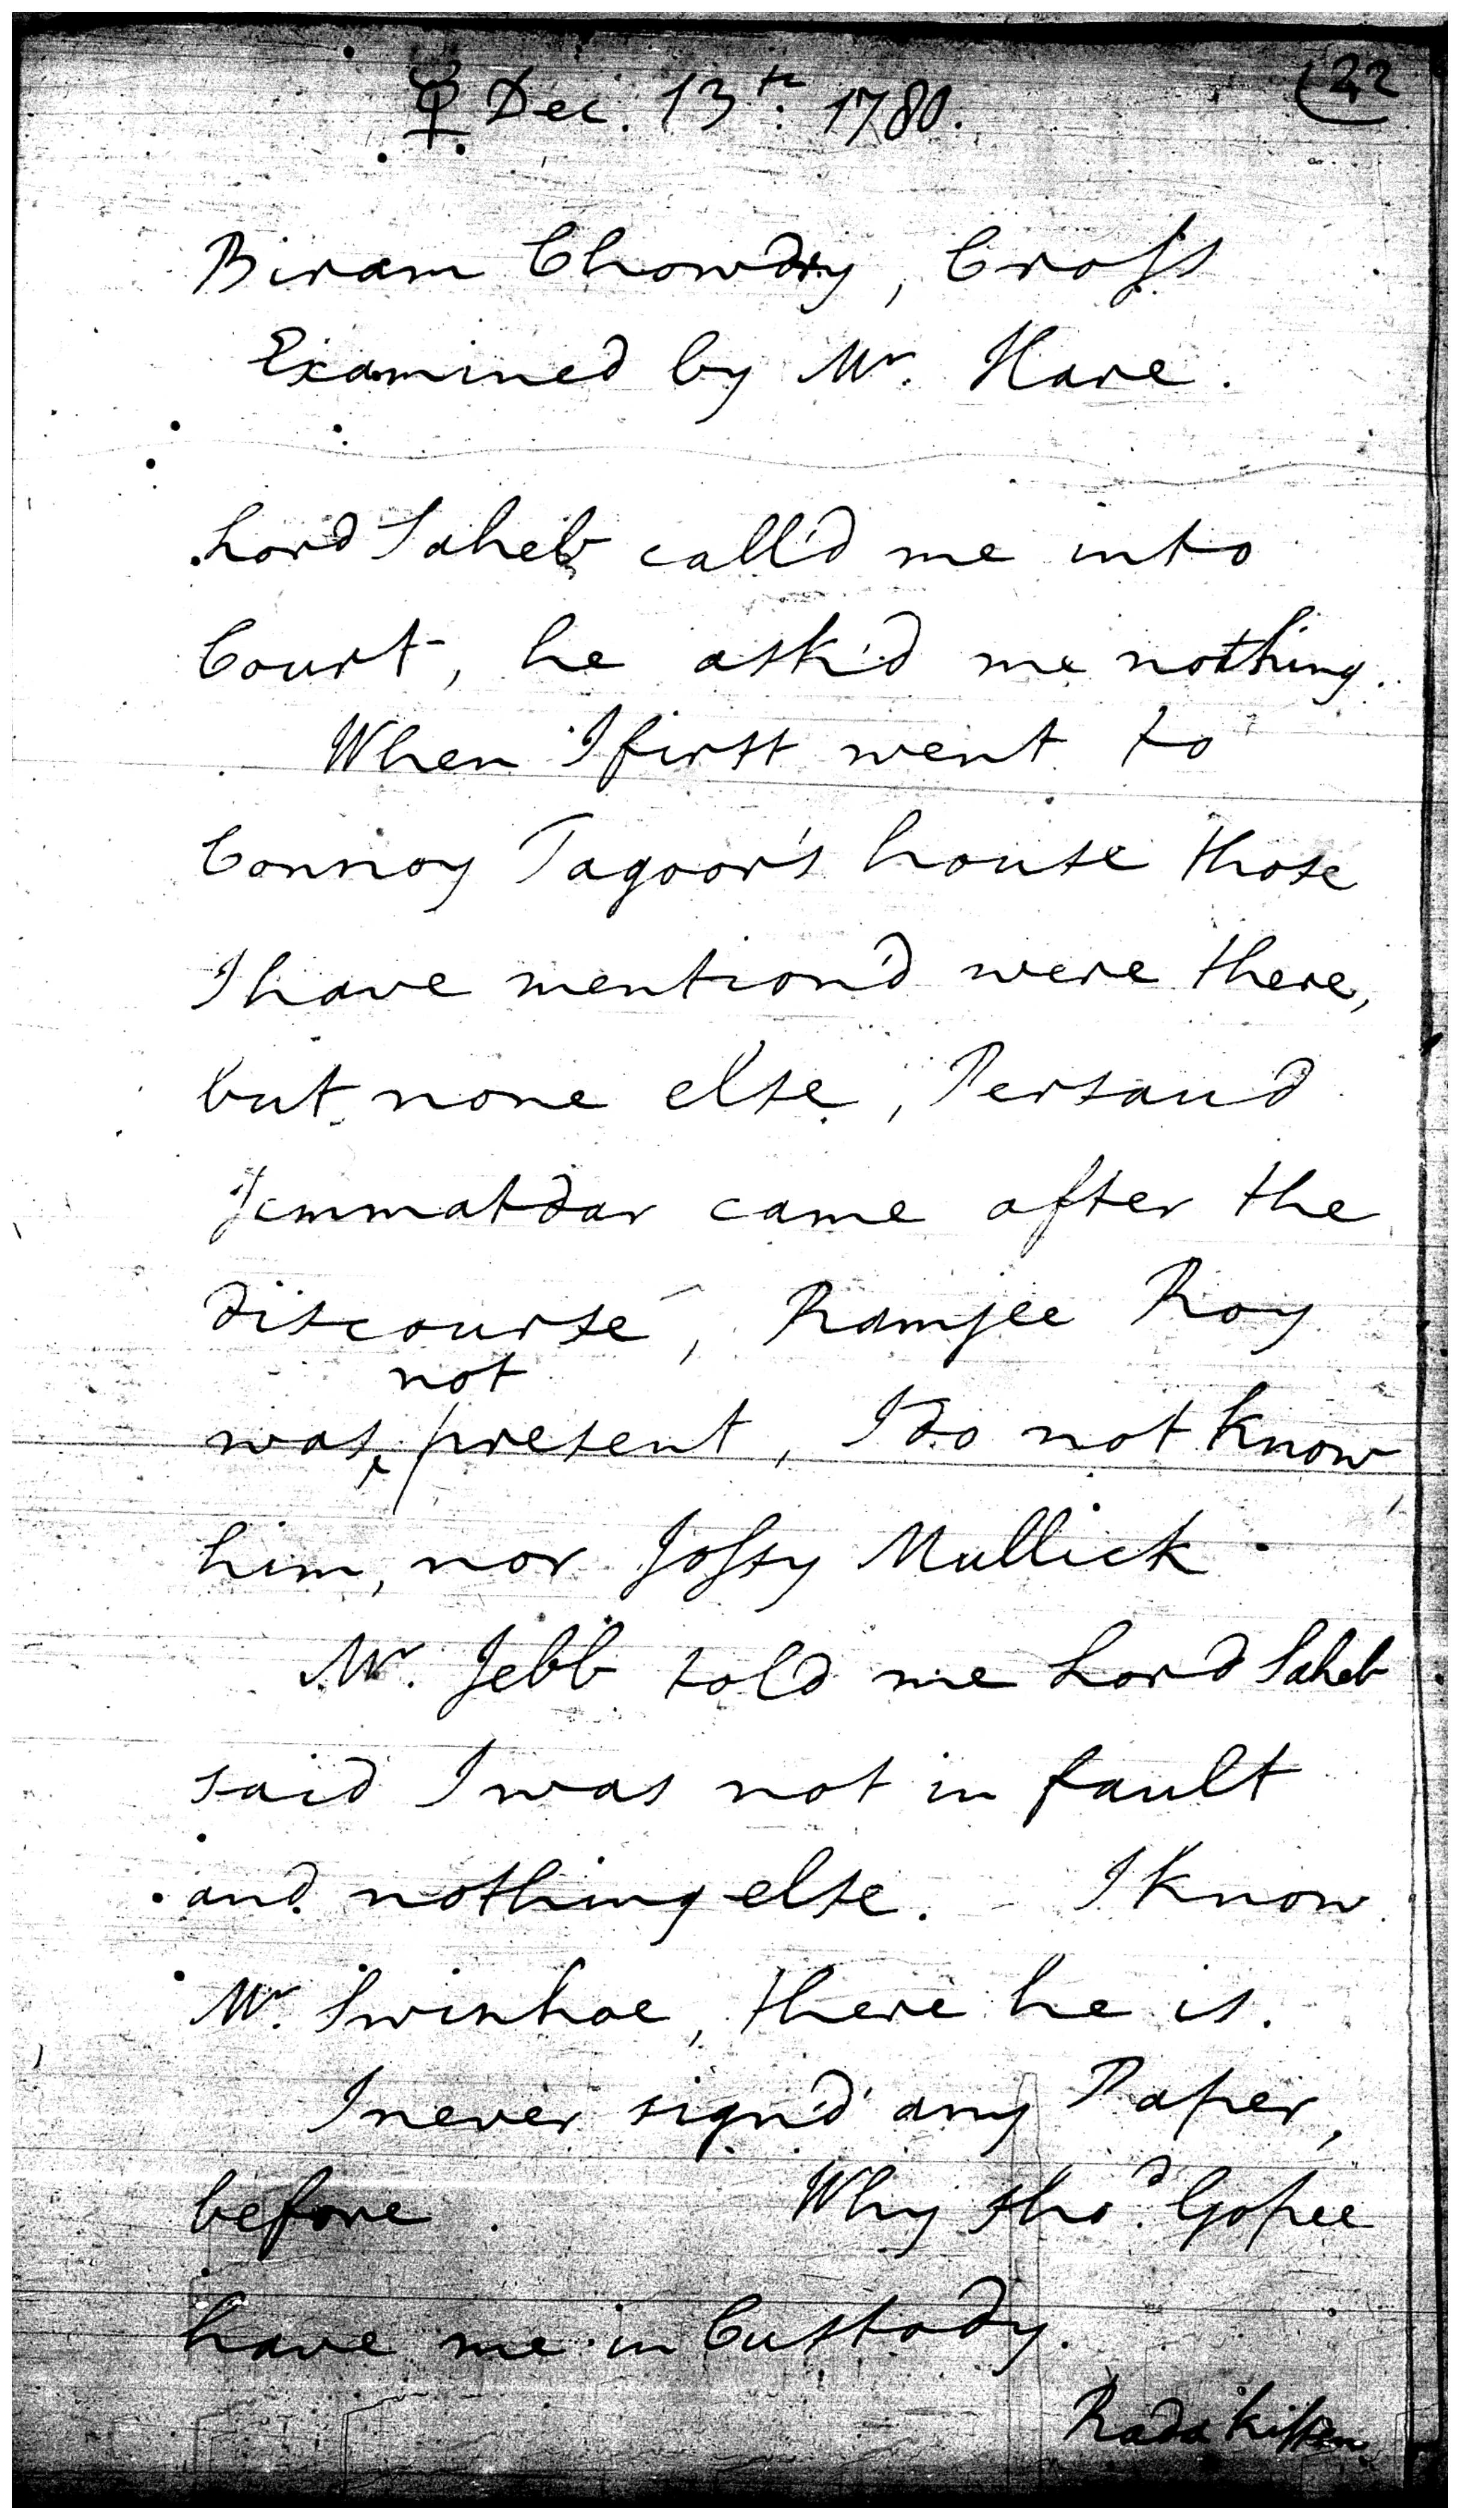 ☿ Dec. 13th. 1780.
22
Biram Chowdry, Cross
Examined by Mr. Hare.
Lord Saheb call'd me into
Court, he ask'd me nothing.
When I first went to
Connoy Tagoor's house those
I have mention'd were there,
but none else, Persaud
Jemmatdar came after the
discourse, Ramjee Roy
not
was ‸ present, I do not know
him, nor Jossy Mullick.
Mr. Jebb told me Lord Saheb
said I was not in fault
and nothing else. I know
Mr. Swinhoe, there he is.
I never sign'd any Paper,
before. Why shod. Gopee
have me in Custody.
Rada Kissen